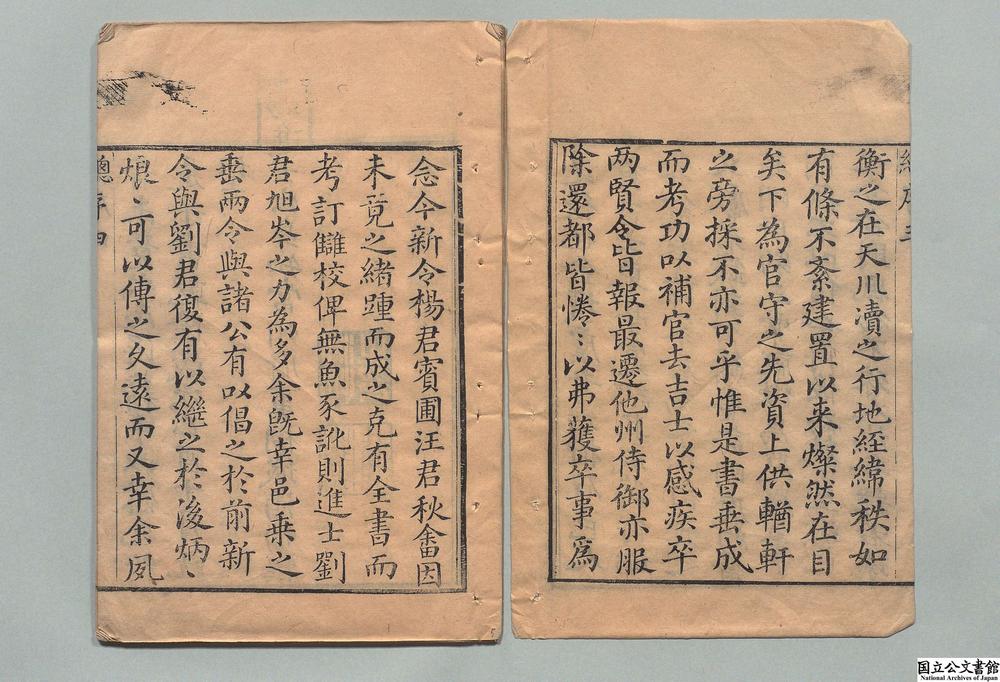 總序三
衡之在天川瀆之行地經緯秩如
有條不紊建置以來燦然在目
矣下為官守之先資上供輶軒
之旁採不亦可乎惟是書垂成
而考功以補官去吉士以感疾卒
两賢令皆報最遷他州侍御亦服
除還都皆惓〻以弗獲卒事為
念今新令楊君賓圃汪君秋畬因
未竟之緒踵而成之克有全書而
考訂讎校俾無魚豕訛則進士劉
君旭岑之力為多余旣幸邑乗之
垂兩令與諸公有以倡之於前新
令與劉君復有以繼之於後炳〻
烺〻可以傳之久遠而又幸余夙
總序四
国立公文書館
National Archives of Japan